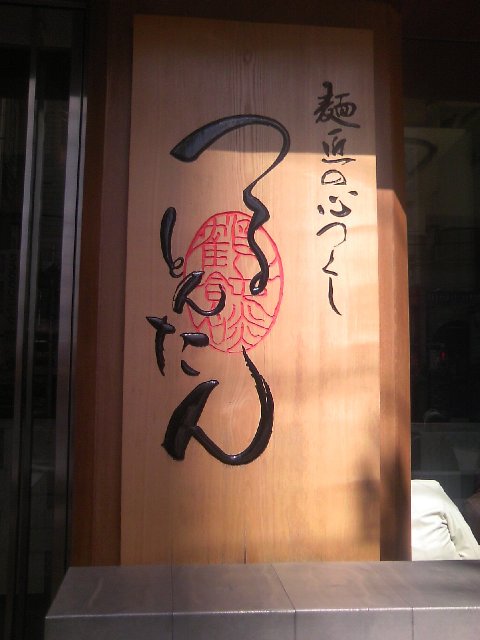 麺匠の心つくし
つるとんたん